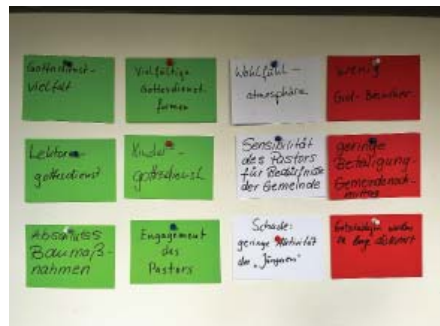 Gottesdienst-
vielfalt
Vielfältige
Gottesdienst
formen
Wohlfühl-
atmosphäre
wenig
Gd-Besucher
Lektoren
gottesdienst
Kinder-
gottesdienst
Sensibilität
des Pastors
für Bedürfnisse
der Gemeinde
geringe
Beteiligung
Abschluss
Baumaß-
nahmen
Engagement
des
Pastors
Schade:
geringe Aktivität
der „Jüngeren"